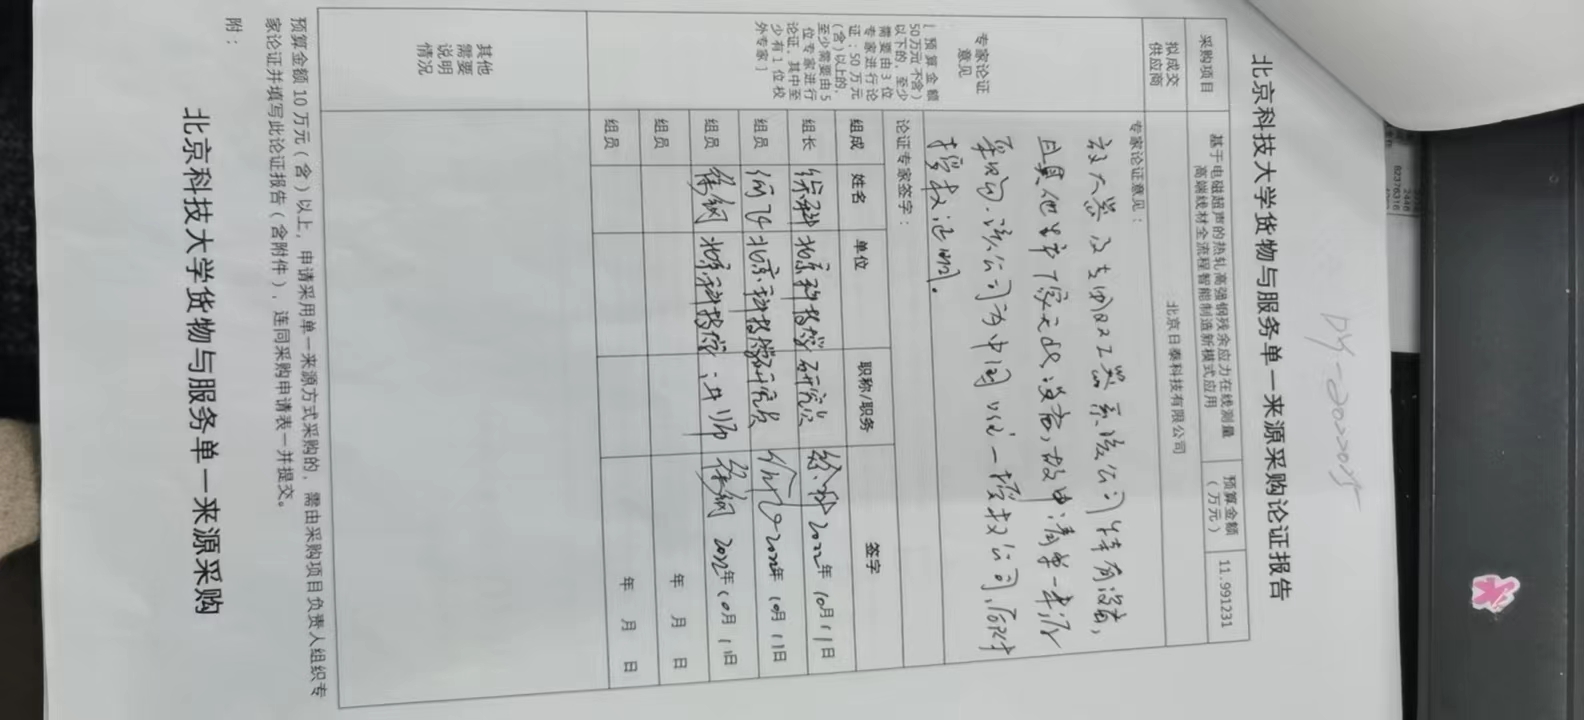 DY-2022025
北京科技大学货物与服务单一来源采购论证报告
采购项目
基于电磁超声的热轧高强钢残余应力在线测量
高端线材全流程智能制造新模式应用
预算金额
（万元）
11.991231
拟成交
供应商
北京日泰科技有限公司
专家论证
意见
[预算金额
50万元(不含)
以下的，至少
需要由3位
专家进行论
证；50万元
(含)以上的，
至少需要由5
位专家进行
论证，其中至
少有1位校
外专家]
专家论证意见：
放大器及专用
系该公司特有设备，
且其他生产厂家无此设备，故申请单一来源
采购。该公司为中国唯一授权公司，
授权证明。
论证专家签字：
组成 姓名 单位 职称/职务 签字
组长 徐科 北京科技大学 研究员 徐科 2022年10月11日
组员 何飞 北京科技大学 研究员 何飞 2022年10月11日
组员 徐钢 北京科技大学 徐钢 2022年10月11日
组员 年 月 日
组员 年 月 日
其他
需要
说明
情况
预算金额10万元（含）以上，申请采用单一来源方式采购的，需由采购项目负责人组织专
家论证并填写此论证报告（含附件），连同采购申请表一并提交。
附：
北京科技大学货物与服务单一来源采购